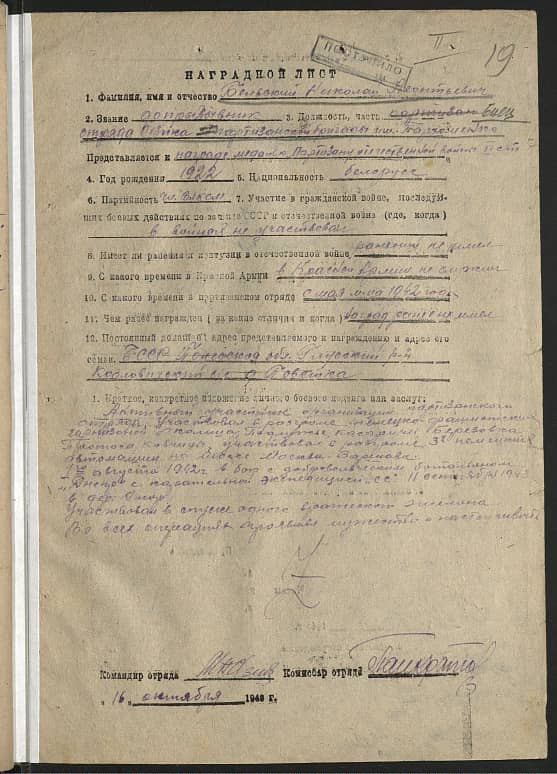 ПОСТУПИЛО
II
19
НАГРАДНОЙ ЛИСТ
1. Фамилия, имя и отчество Бельский Николай
2. Звание подрывник 3. Должность, часть партизан боец
отряда партизанской бригады им. Пархоменко
Представляется к награде медалью Партизану отечественной войны II ст.
4. Год рождения 1922 5. Национальность белорус
6. Партийность чл. ВЛКСМ 7. Участие в гражданской войне, последую-
щих боевых действиях по защите СССР и отечественной войне (где, когда)
в войнах не участвовал
8. Имеет ли ранения и контузии в отечественной войне ранений не имел
9. С какого времени в Красной Армии в Красной Армии не служил
10. С какого времени в партизанском отряде с мая м-ца 1942 года
11. Чем ранее награжден (за какие отличия и когда) наград не имел
12. Постоянный домашний адрес представляемого к награждению и адрес его
семьи БССР обл. Глусский р-н
Козловический с/с д.
1. Краткое, конкретное изложение личного боевого подвига или заслуг:
Активный участник организации партизанского
отряда. Участвовал в разгроме немецко-фашистских
гарнизонов
участвовал в разгроме 3х немецких
автомашин на шоссе Москва-Варшава.
августа 1942г в бою с добровольческим батальоном
"Днепр" с карательной экспедицией "СС" 1943
в дер.
Участвовал в спуске одного вражеского эшелона
Во всех операциях проявил мужество и настойчивость
Командир отряда Комиссар отряда
"16" октября 1943 г.